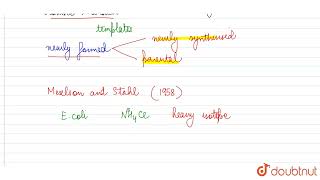 templates
newly synthesised
newly formed
parental
Meselson and Stahl (1958)
E.coli NH4Cl heavy isotope
doubtnut